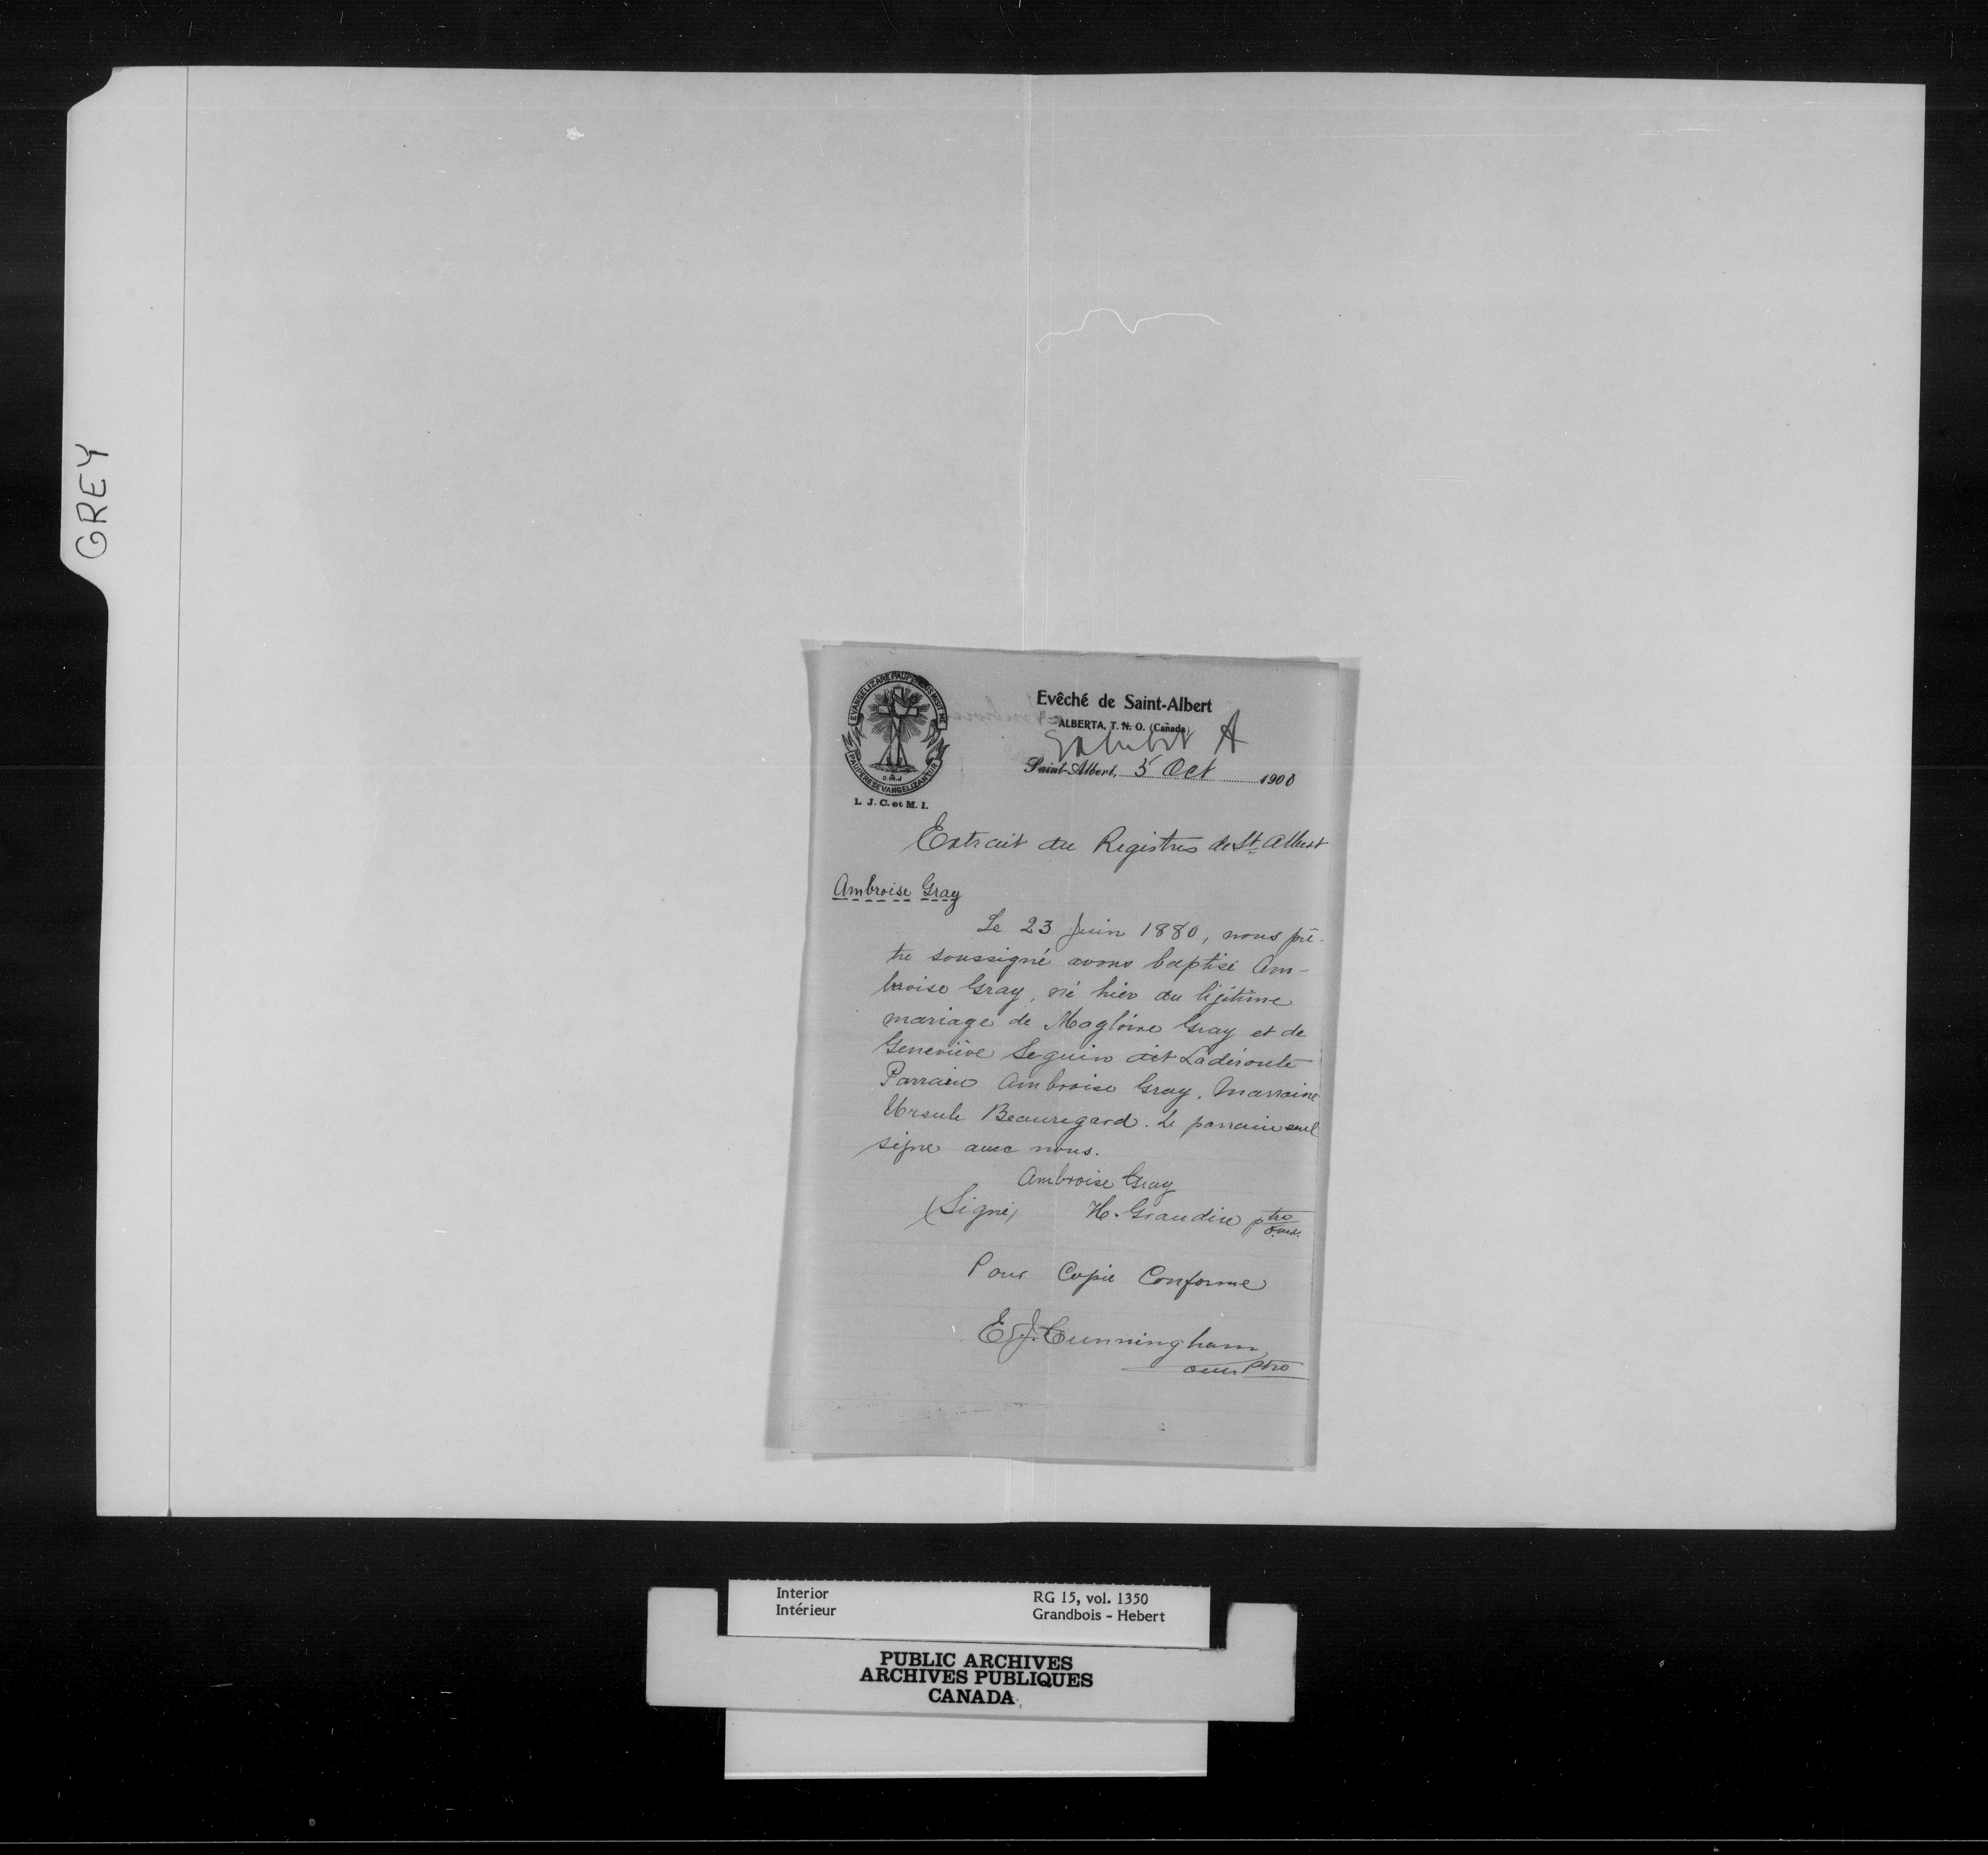 GREY
EVANGELIZARE PAUPERIBUS MISIT ME
PAUPERES EVANGELIZANTUR
O.M.J
L. J. C. et M. I.
Evêché de Saint-Albert
ALBERTA, T. N. O. (Canada)
Exhibit A
Saint-Albert, 5 Oct 1900
Extrait du Registres de St. Albert
Ambroise Gray
Le 23 Juin 1880, nous prê-
tre soussigné avons baptisé Am-
broise Gray, né hier du légitime
mariage de Magloire Gray et de
Geneviève Seguin dit Ladéroute
Parrain Ambroise Gray, Marraine
Ursule Beauregard. Le parrain seul
signe avec nous.
Ambroise Gray
(Signé) H. Grandin ptre
o.m.i.
Pour Copie Conforme
E. J. Cunningham
omi Ptre
Interior
Intérieur
RG 15, vol. 1350
Grandbois - Hebert
PUBLIC ARCHIVES
ARCHIVES PUBLIQUES
CANADA